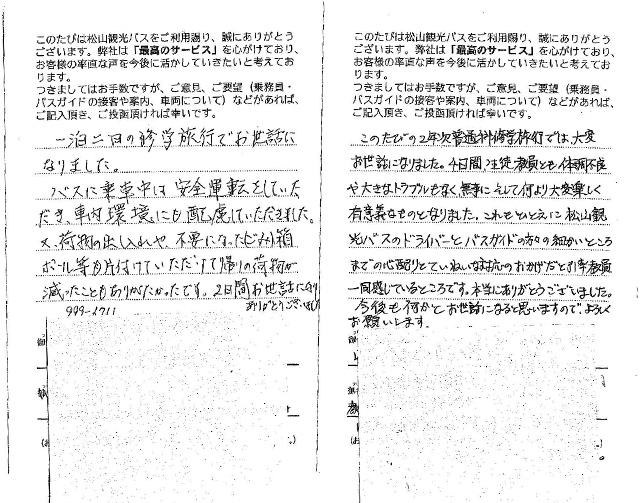 このたびは松山観光バスをご利用賜り、誠にありがとう
ございます。弊社は「最高のサービス」を心がけており、
お客様の率直な声を今後に活かしていきたいと考えて
おります。
つきましてはお手数ですが、ご意見、ご要望（乗務員・
バスガイドの接客や案内、車両について）などがあれば、
ご記入頂き、ご投函頂ければ幸いです。
一泊二日の修学旅行でお世話に
なりました。
バスに乗車中は安全運転をしていた
だき、車内環境にも配慮していただきました。
又、荷物の出し入れや不要になったダンボール箱
ボール等も片付けていただけて帰りの荷物が
減ったこともありがたかったです。2日間お世話になり
ありがとうございました
999-6711
このたびは松山観光バスをご利用賜り、誠にありがとう
ございます。弊社は「最高のサービス」を心がけており、
お客様の率直な声を今後に活かしていきたいと考えて
おります。
つきましてはお手数ですが、ご意見、ご要望（乗務員・
バスガイドの接客や案内、車両について）などがあれば、
ご記入頂き、ご投函頂ければ幸いです。
このたびの2年次普通科修学旅行では、大変
お世話になりました。4日間、生徒、教員とも体調不良
や大きなトラブルもなく、無事に、そして何より大変楽しく
有意義なものとなりました。これもひとえに松山観
光バスのドライバーとバスガイドの方々の細かいところ
までの心配りとていねいな対応のおかげだと引率教員
一同感じているところです。本当にありがとうございました。
今後も何かとお世話になると思いますので、よろしく
お願いします。